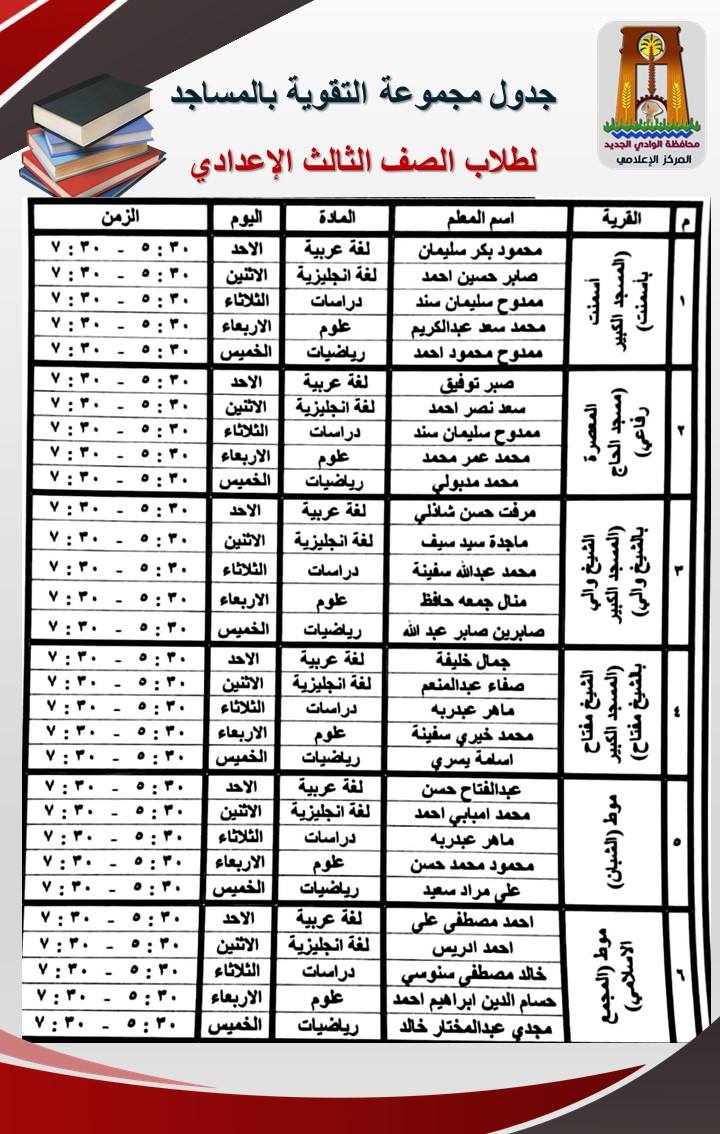 جدول مجموعة التقوية بالمساجد
لطلاب الصف الثالث الإعدادي
محافظة الوادي الجديد
المركز الإعلامي
م القرية اسم المعلم المادة اليوم الزمن
١ أسمنت (المسجد الكبير بأسمنت) محمود بكر سليمان لغة عربية الاحد ٥:٣٠ - ٧:٣٠
صابر حسين احمد لغة انجليزية الاثنين ٥:٣٠ - ٧:٣٠
ممدوح سليمان سند دراسات الثلاثاء ٥:٣٠ - ٧:٣٠
محمد سعد عبدالكريم علوم الاربعاء ٥:٣٠ - ٧:٣٠
ممدوح محمود احمد رياضيات الخميس ٥:٣٠ - ٧:٣٠
٢ المعصرة (مسجد الحاج رفاعي) صبر توفيق لغة عربية الاحد ٥:٣٠ - ٧:٣٠
سعد نصر احمد لغة انجليزية الاثنين ٥:٣٠ - ٧:٣٠
ممدوح سليمان سند دراسات الثلاثاء ٥:٣٠ - ٧:٣٠
محمد عمر محمد علوم الاربعاء ٥:٣٠ - ٧:٣٠
محمد مدبولي رياضيات الخميس ٥:٣٠ - ٧:٣٠
٣ الشيخ والي (المسجد الكبير بالشيخ والي) مرفت حسن شاذلي لغة عربية الاحد ٥:٣٠ - ٧:٣٠
ماجدة سيد سيف لغة انجليزية الاثنين ٥:٣٠ - ٧:٣٠
محمد عبدالله سفينة دراسات الثلاثاء ٥:٣٠ - ٧:٣٠
منال جمعه حافظ علوم الاربعاء ٥:٣٠ - ٧:٣٠
صابرين صابر عبد الله رياضيات الخميس ٥:٣٠ - ٧:٣٠
٤ الشيخ مفتاح (المسجد الكبير بالشيخ مفتاح) جمال خليفة لغة عربية الاحد ٥:٣٠ - ٧:٣٠
صفاء عبدالمنعم لغة انجليزية الاثنين ٥:٣٠ - ٧:٣٠
ماهر عبدربه دراسات الثلاثاء ٥:٣٠ - ٧:٣٠
محمد خيري سفينة علوم الاربعاء ٥:٣٠ - ٧:٣٠
اسامة يسري رياضيات الخميس ٥:٣٠ - ٧:٣٠
٥ موط (الشبان) عبدالفتاح حسن لغة عربية الاحد ٥:٣٠ - ٧:٣٠
محمد امبابي احمد لغة انجليزية الاثنين ٥:٣٠ - ٧:٣٠
ماهر عبدربه دراسات الثلاثاء ٥:٣٠ - ٧:٣٠
محمود محمد حسن علوم الاربعاء ٥:٣٠ - ٧:٣٠
علي مراد سعيد رياضيات الخميس ٥:٣٠ - ٧:٣٠
٦ موط (المجمع الاسلامي) احمد مصطفى علي لغة عربية الاحد ٥:٣٠ - ٧:٣٠
احمد ادريس لغة انجليزية الاثنين ٥:٣٠ - ٧:٣٠
خالد مصطفى سنوسي دراسات الثلاثاء ٥:٣٠ - ٧:٣٠
حسام الدين ابراهيم احمد علوم الاربعاء ٥:٣٠ - ٧:٣٠
مجدي عبدالمختار خالد رياضيات الخميس ٥:٣٠ - ٧:٣٠